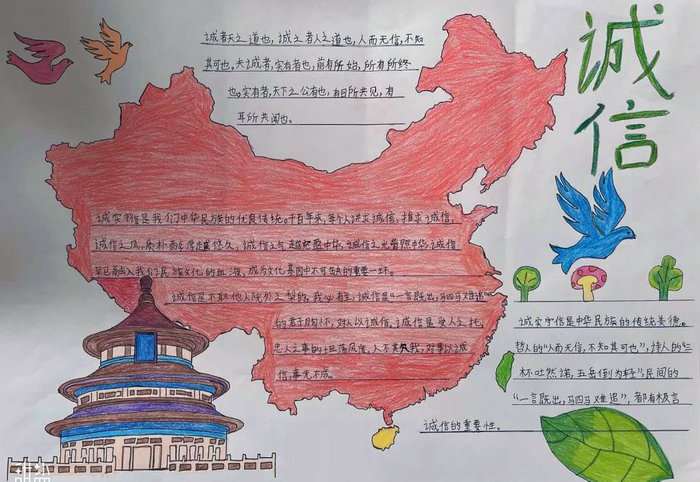 诚信
诚者天之道也，诚之者人之道也，人而无信，不知
其可也，夫诚者，实有者也，前有所始，所有所终
也，实有者，天下之公有也，有目所共见，有
耳所共闻也。
诚实守信是我们中华民族的优良传统。千百年来，每个人讲求诚信，推崇诚信，
诚信之风，质朴而悠久，诚信之气，中华，诚信之光普照中华，诚信
早已融入我们民族文化的血液，成为文化基因中不可缺的重要一环。
诚信是不取他人阶之梨的，我心有主，诚信是“一言既出，驷马难追”
的君子胸怀，对人以诚信，诚信是受人之托，
忠人之事的坦荡风度，人不欺我，对事以诚
信，事无不成。
诚实守信是中华民族的传统美德。
哲人的“人而无信，不知其可也”，诗人的“三
杯吐然诺，五岳倒为轻”，民间的
“一言既出，驷马难追”，都有极言
诚信的重要性。